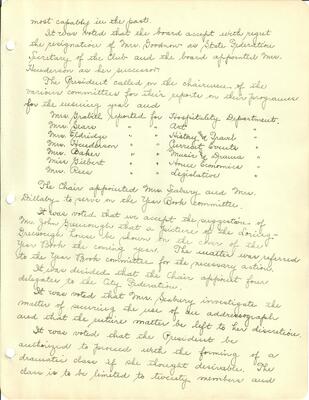 most capably in the past.
It was voted that the board accept with regret
the resignation of Mrs. Goodnow as State Federation
Secretary of the Club and the board appointed Mrs.
Henderson as her successor.
The President called on the chairmen of the
various committees for their reports on their programs
for the ensuing year and
Mrs. reported for Hospitality Department.
Mrs. Sears " " Art "
Mrs. Eldridge " " History & Travel "
Mrs. Henderson " " Current Events "
Mrs. Baker " " Music & Drama "
Miss Gilbert " " Home Economics "
Mrs. Rees " " Legislative "
The Chair appointed Mrs. Seabury and Mrs.
Dillaby to serve on the Year Book Committee.
It was voted that we accept the suggestion of
Mr. John that a picture of the Loring-
Greenough house be shown on the cover of the
Year Book the coming year. The matter was referred
to the Year Book committee for the necessary action.
It was decided that the Chair appoint four
delegates to the City Federation.
It was voted that Mrs. Seabury investigate the
matter of securing the use of an addressograph
and that the entire matter be left to her discretion.
It was voted that the President be
authorized to proceed with the forming of a
dramatic class if she thought desirable. The
class is to be limited to twenty members and